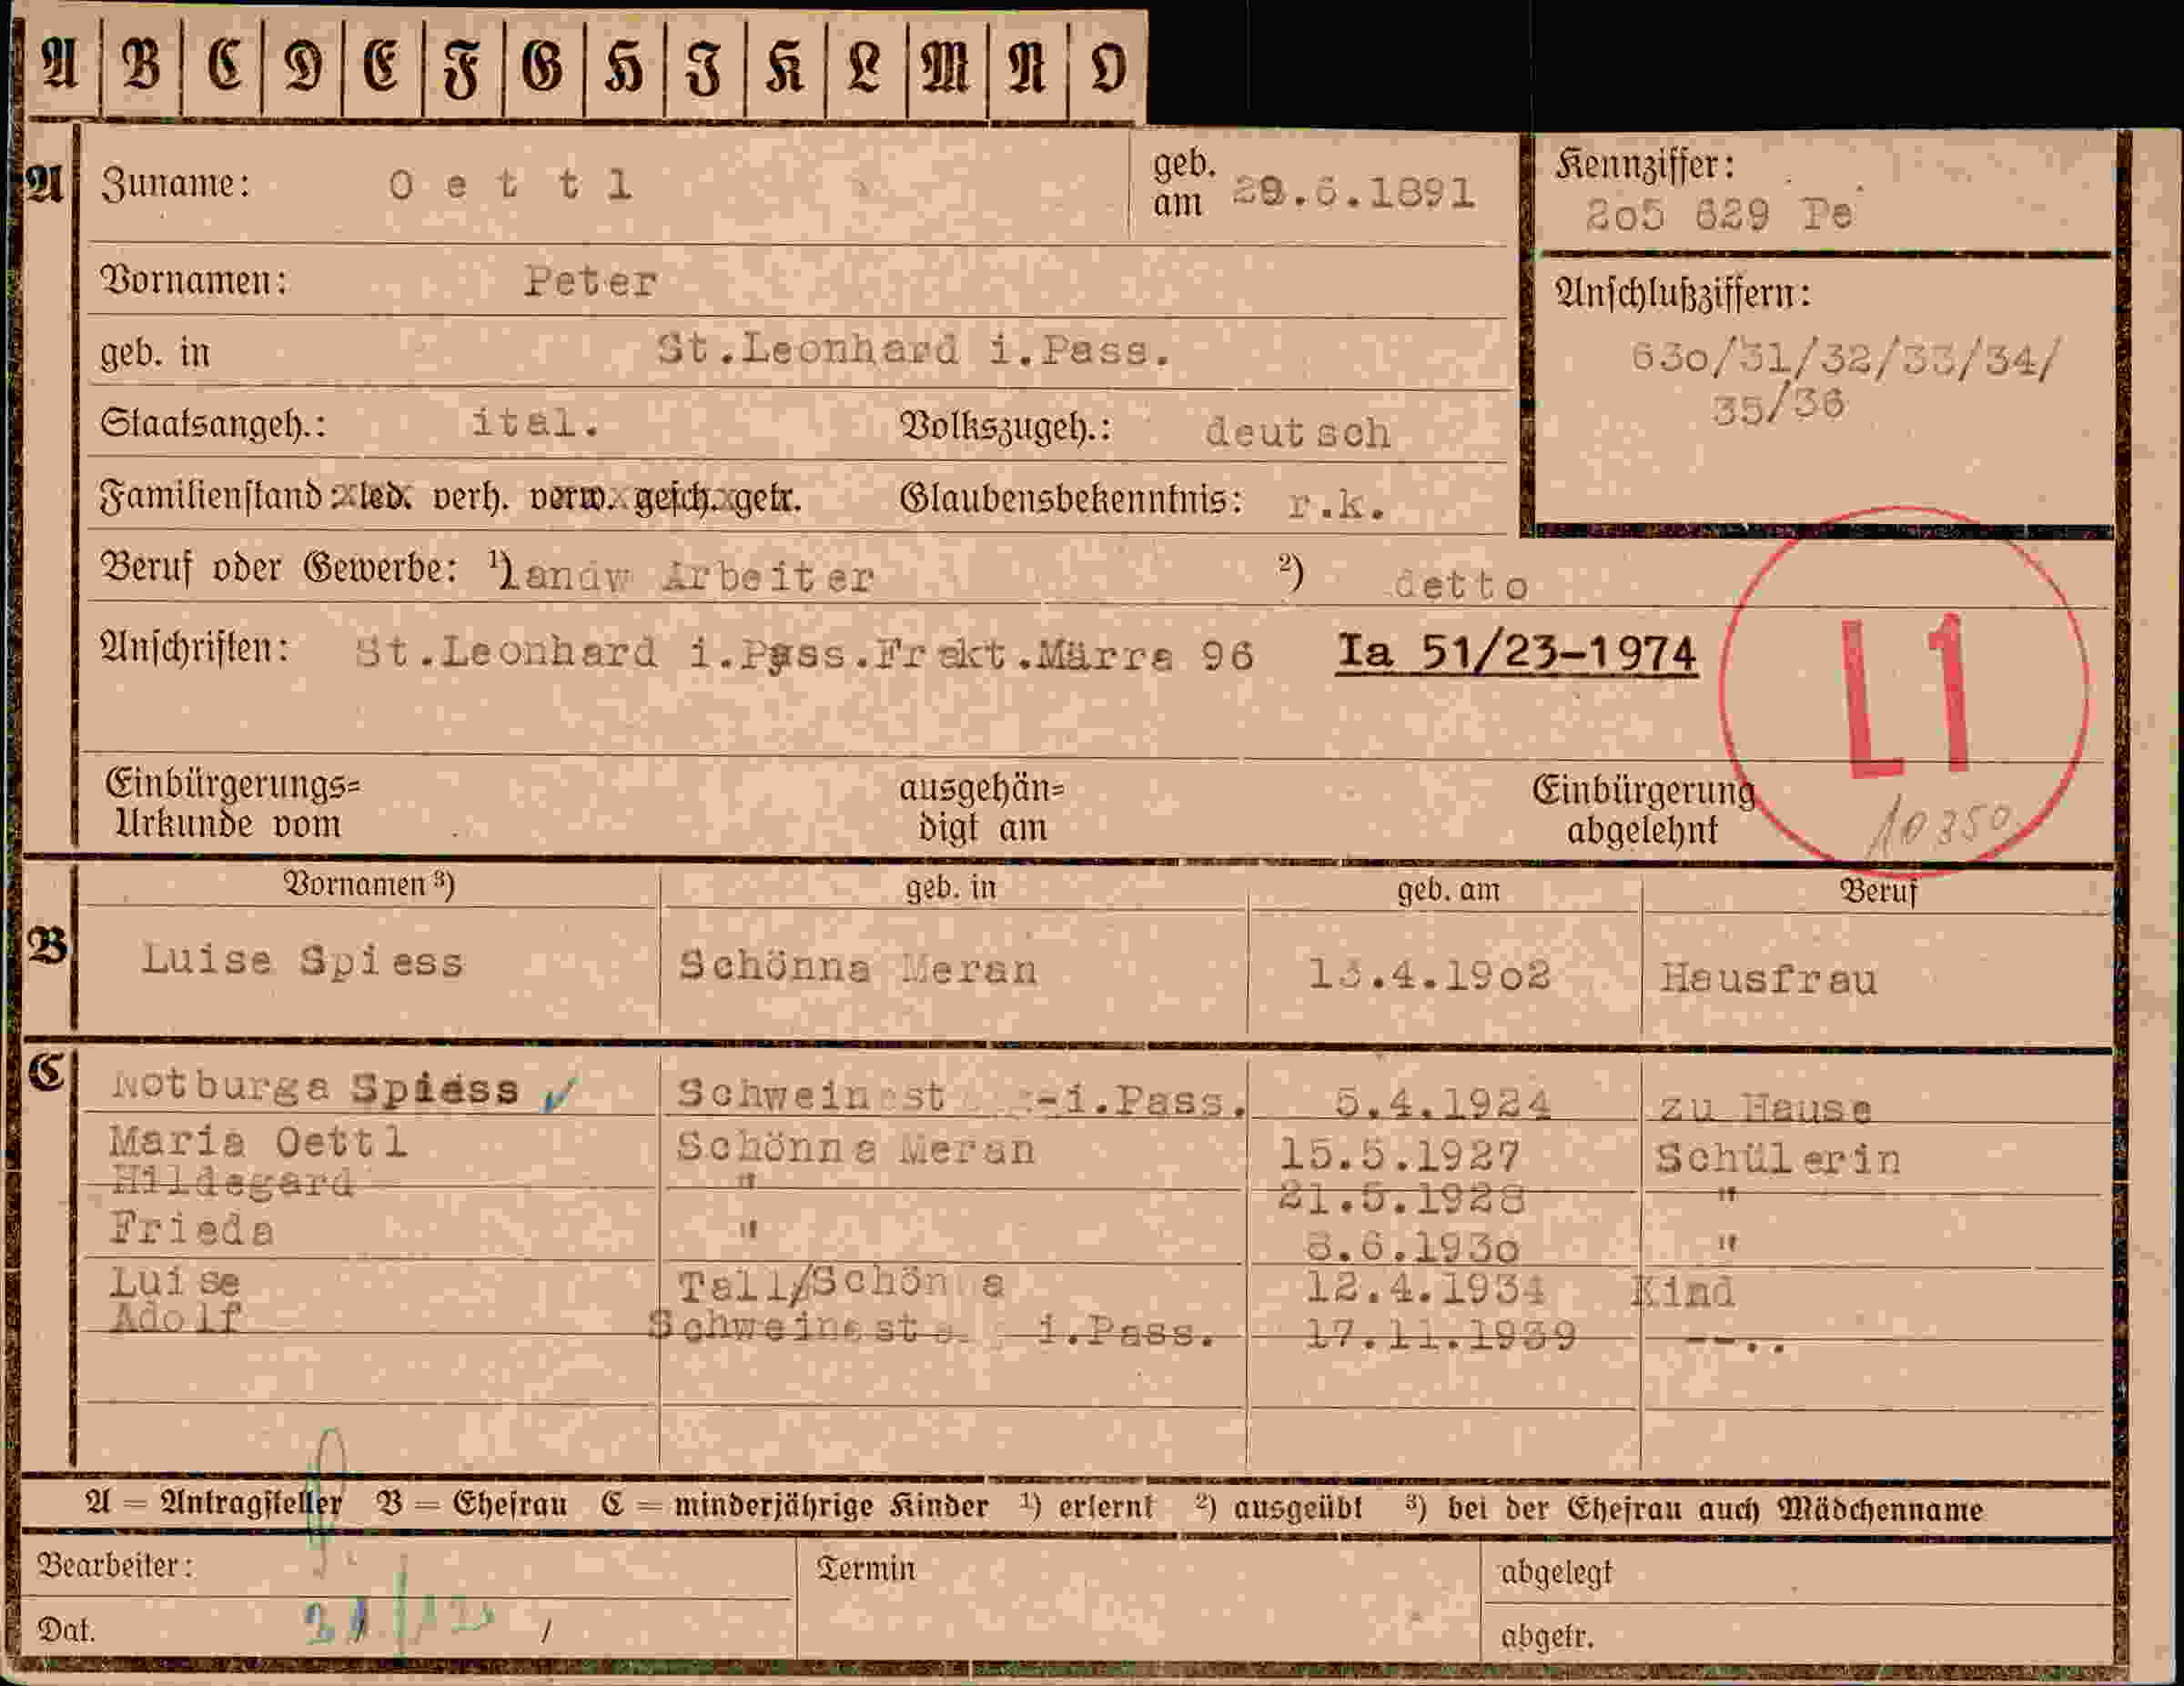 A B C D E F G H I K L M N O
A Zuname: Oettl geb. am 29.6.1891 Kennziffer: 2o5 629 Pe
Vornamen: Peter
Anschlußziffern:
geb. in St.Leonhard i.Pass. 63o/31/32/33/34/
35/36
Staatsangeh.: ital. Volkszugeh.: deutsch
Familienstand: led. verh. verw. gesch. getr. Glaubensbekenntnis: r.k.
Beruf oder Gewerbe: ¹) landw Arbeiter ²) detto
Anschriften: St.Leonhard i.Pass.Frakt.Märre 96 Ia 51/23-1974 L1
Einbürgerungs= Urkunde vom ausgehän= digt am Einbürgerung abgelehnt 10350
Vornamen ³) geb. in geb. am Beruf
B Luise Spiess Schönna Meran 13.4.19o2 Hausfrau
C Notburga Spiess Schweinst i.Pass. 5.4.1924 zu Hause
Maria Oettl Schönna Meran 15.5.1927 Schülerin
Hildegard " 21.5.1928 "
Frieda " 8.6.193o "
Luise Tall/Schön a 12.4.1934 Kind
Adolf Schweinest i.Pass. 17.11.1939 --..
A = Antragsteller B = Ehefrau C = minderjährige Kinder ¹) erlernt ²) ausgeübt ³) bei der Ehefrau auch Mädchenname
Bearbeiter: Termin abgelegt
Dat. / abgetr.